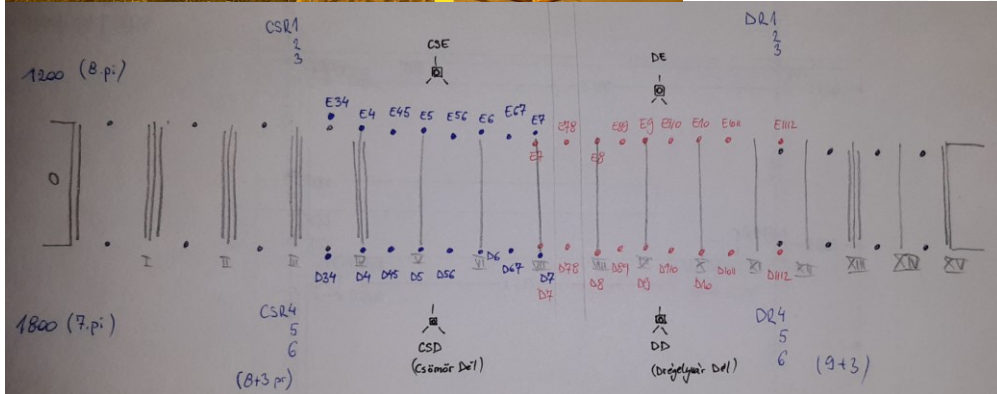 CSR1
2
3
DR1
2
3
CSE
DE
1200 (8.pi)
E34 E4 E45 E5 E56 E6 E67 E7 E78 E89 E9 E910 E10 E1011 E1112
E7 E8
0
I II III IV V VI VII VIII IX X XI XII XIII XIV XV
D34 D4 D45 D5 D56 D6 D67 D7 D78 D8 D89 D9 D910 D10 D1011 D1112
D7
1800 (7.pi)
CSR4
5
6
(8+3 pr)
CSD
(Csömör Dél)
DD
(Drégelyvár Dél)
DR4
5
6
(9+3)